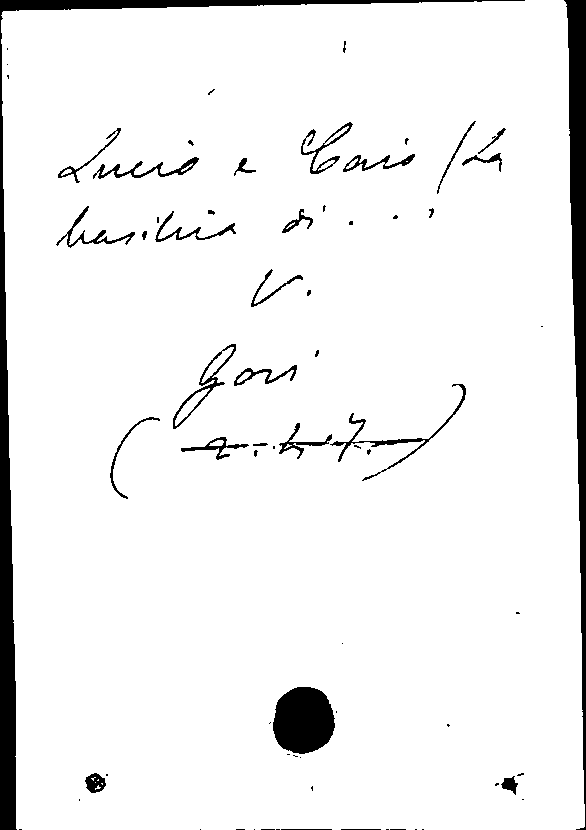 Lucio e Caio (La
basilica di . . .
V.
Gori